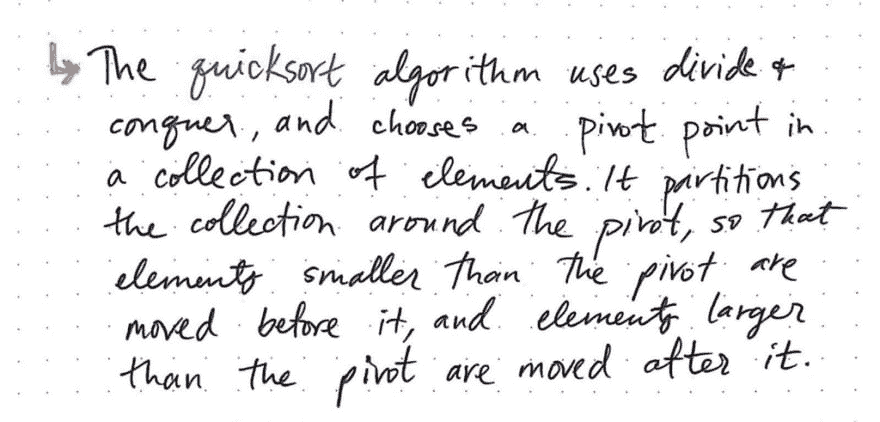 ↳ The quicksort algorithm uses divide &
conquer, and chooses a pivot point in
a collection of elements. It partitions
the collection around the pivot, so that
elements smaller than the pivot are
moved before it, and elements larger
than the pivot are moved after it.